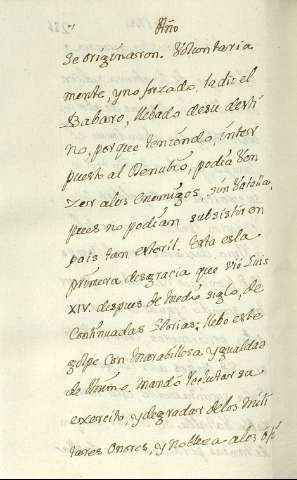 Año
se originaron. Voluntaria
mente, y no forzado, la dio el
Babaro, llebado de su desti
no, porque teniendo, inter
puesto al Danubio, podia Ven
zer alos enemigos, sin Vatalla,
pues no podian subsistir en
pais tan esteril. Esta es la
primera desgracia que vio Luis
XIV. despues de medio siglo, de
Continuadas Glorias; llebo este
golpe con Marabillosa, y igualdad
de Animo. Mando Reclutar su
exercito, y degradar de los mili
tares onores, y nobleza alos ofi